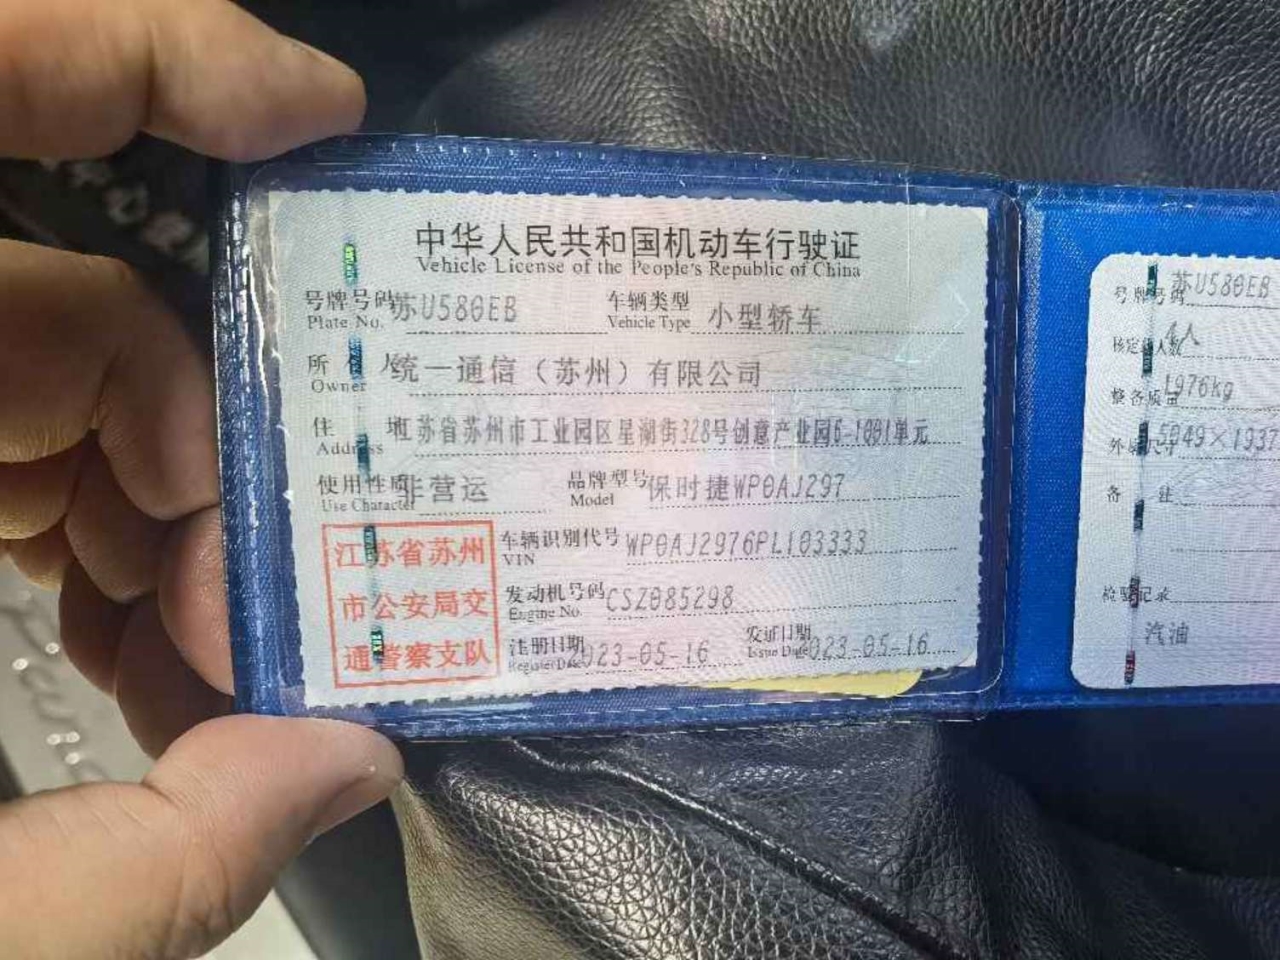 中华人民共和国机动车行驶证
Vehicle License of the People's Republic of China
号牌号码 苏U580EB 车辆类型 小型轿车
Plate No. Vehicle Type
所有人 统一通信（苏州）有限公司
Owner
住 址 江苏省苏州市工业园区星湖街328号创意产业园6-1001单元
Address
使用性质 非营运 品牌型号 保时捷WP0AJ297
Use Character Model
江苏省苏州
市公安局交
通警察支队
车辆识别代号 WP0AJ2976PL103333
VIN
发动机号码 CSZ085298
Engine No.
注册日期 023-05-16 发证日期 023-05-16
Register Date Issue Date
号牌号码 苏U580EB
核定载人数 4人
整备质量 1976kg
外廓尺寸 5049×1937
备 注
检验记录
汽油